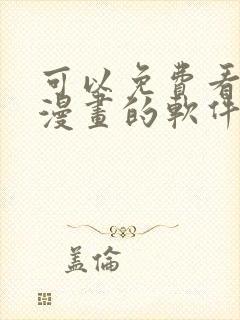 可以免費看
漫畫的軟件
蓋倫